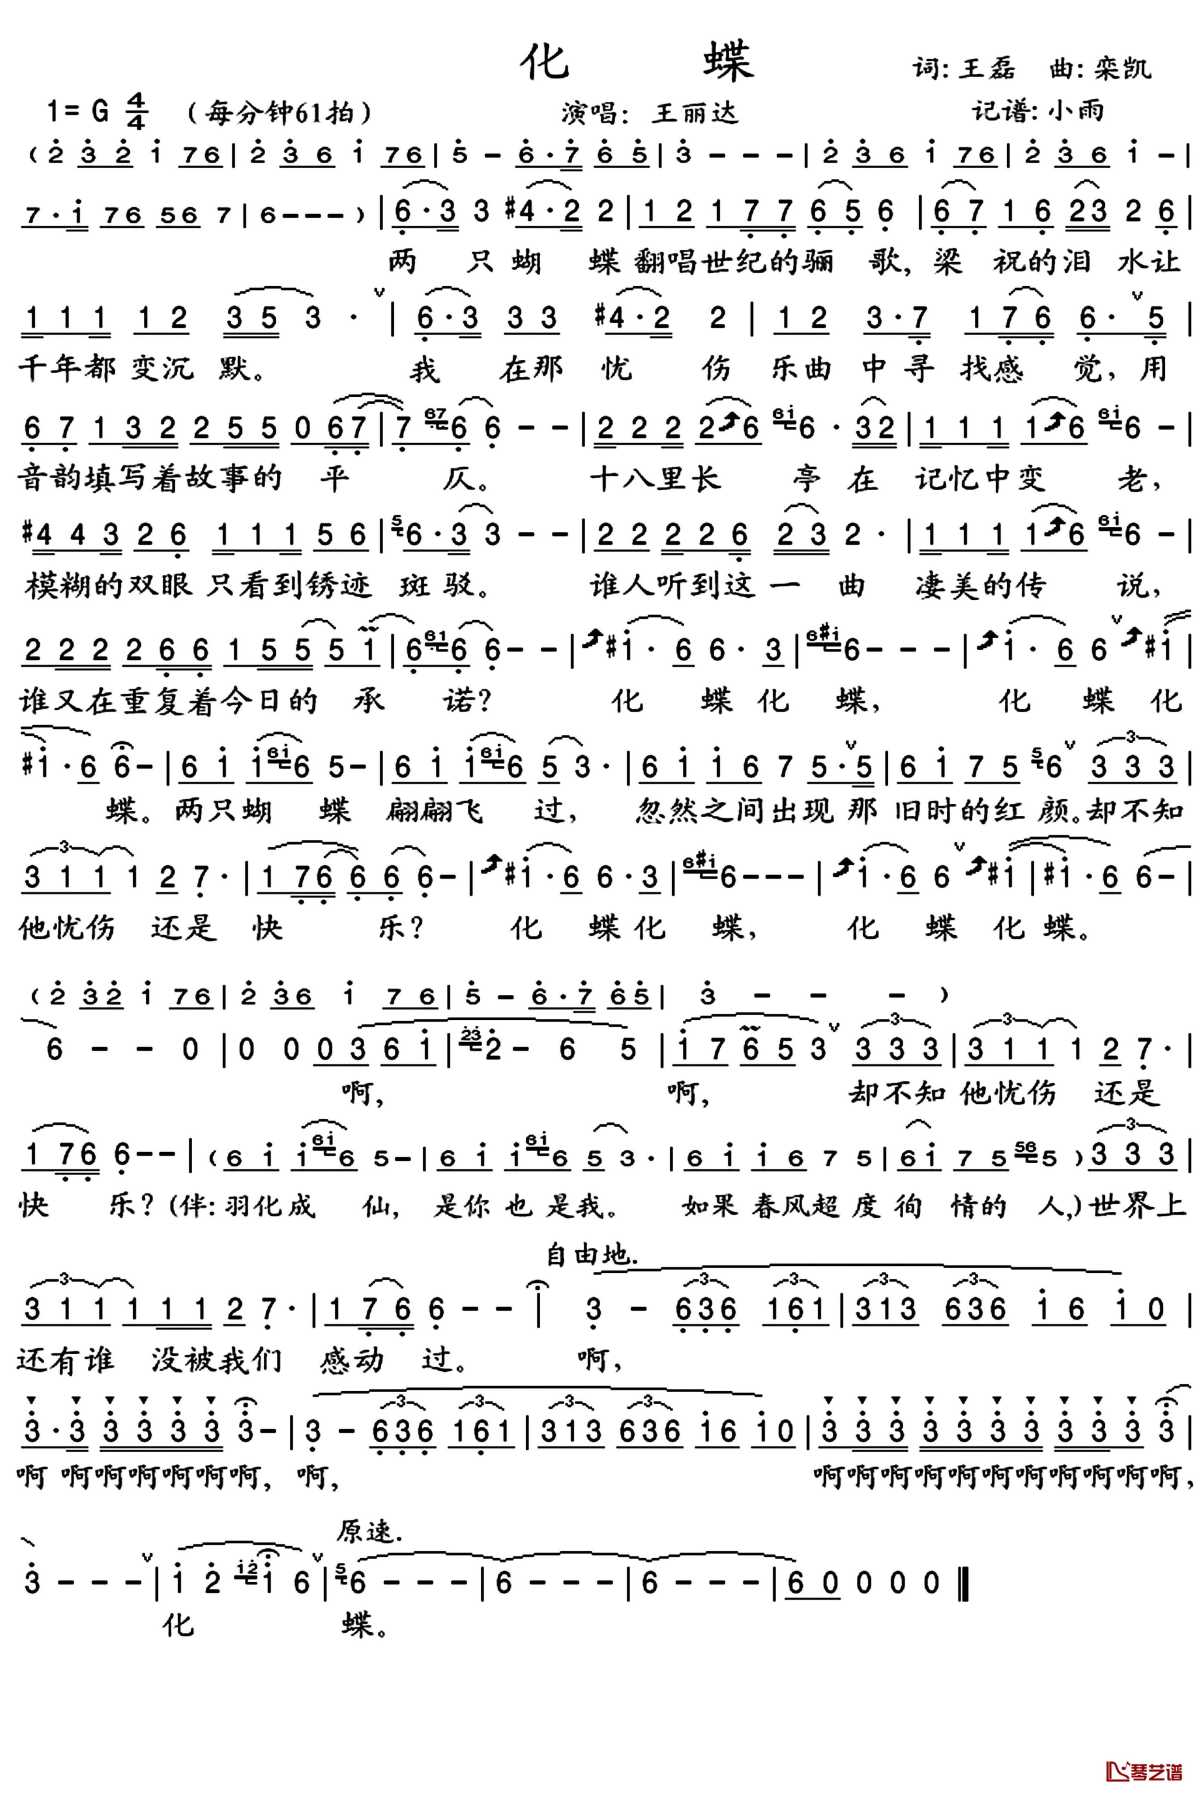 化 蝶
词: 王磊 曲: 栾凯
1= G 4/4 (每分钟61拍) 演唱: 王丽达 记谱: 小雨
两 只 蝴 蝶 翻唱世纪的骊 歌, 梁 祝的泪 水让
千年都 变沉 默。 我 在那 忧 伤 乐曲 中 寻 找感 觉, 用
音韵填写着故事的 平 仄。 十八里长 亭 在 记忆中变 老,
模糊的双眼 只看到锈迹 斑 驳。 谁人听到这 一 曲 凄美的传 说,
谁又在重复着今日的 承 诺? 化 蝶化 蝶, 化 蝶 化
蝶。两只蝴 蝶 翩翩飞 过, 忽然之间出现那 旧时的红 颜。却不知
他忧伤 还是 快 乐? 化 蝶化 蝶, 化 蝶 化蝶。
啊, 啊, 却不知 他忧伤 还是
快 乐? (伴: 羽化成 仙, 是你也是我。 如果春风超度徇 情的 人,) 世界上
自由地.
还有谁 没被我们 感动 过。 啊,
啊 啊啊啊啊啊啊, 啊, 啊啊啊啊啊啊啊啊啊啊啊,
原速.
化 蝶。
琴艺谱